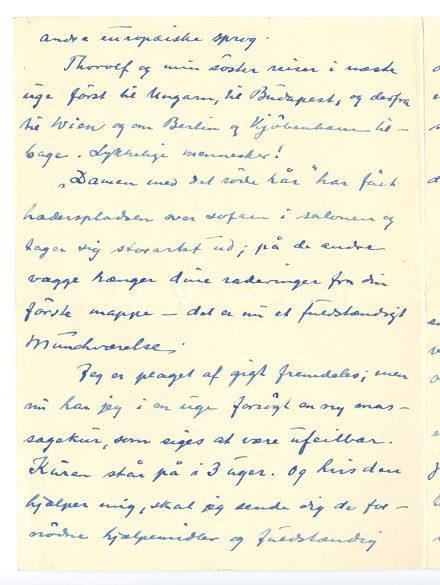 andre europæiske sprog.
Thorolf og min søster reiser i næste
uge först til Ungarn, til Budapest, og derfra
til Wien og om Berlin og Kjøbenhavn til-
bage. Lykkelige mennesker!
„Damen med det røde hår" har fåt
hæderspladsen over sofaen i salonen og
tager sig storartet ud; på de andre
vægge hænger dine raderinger fra din
første mappe – det er nu et fuldstændigt
Munchværelse.
Jeg er plaget af gigt fremdeles; men
nu har jeg i en uge forsøgt en ny mas-
sagekur, som siges at være ufeilbar.
Kuren står på i 3 uger. Og hvis den
hjælper mig, skal jeg sende dig de for-
nødne hjælpemidler og fuldstændig